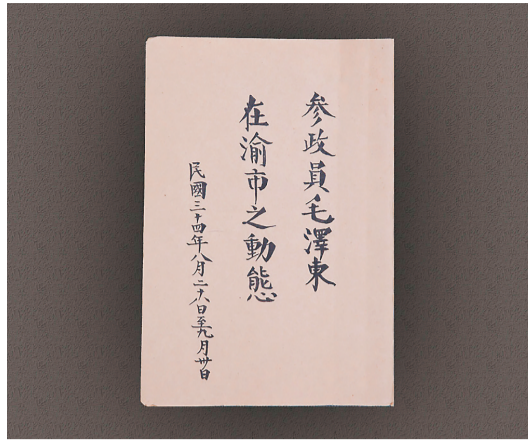 参政員毛澤東
在渝市之動態
民國三十四年八月二十八日至九月卅日